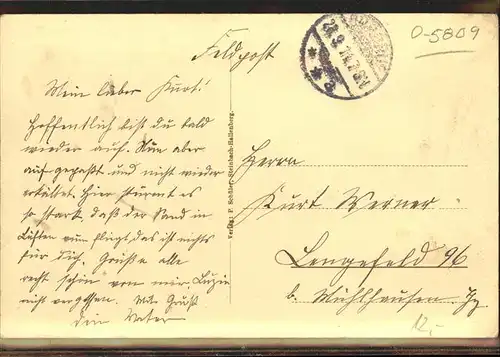 O-5809
Feldpost
Mein lieber Kurt!
Hoffentlich bist du bald
wieder auf. Nun aber
aufgepaßt und nicht wieder
erkältet. Hier stürmt es
so stark, daß der Sand in
Lüften rum fliegt, das ist nichts
für dich. Grüße alle
recht schön von mir. Luzie
nicht vergessen. Mit Gruß
dein Vater
Verlag: F. Schüler, Steinbach-Hallenberg.
Herrn
Kurt Werner
Lengefeld 96
b. Mühlhausen Th
12,-